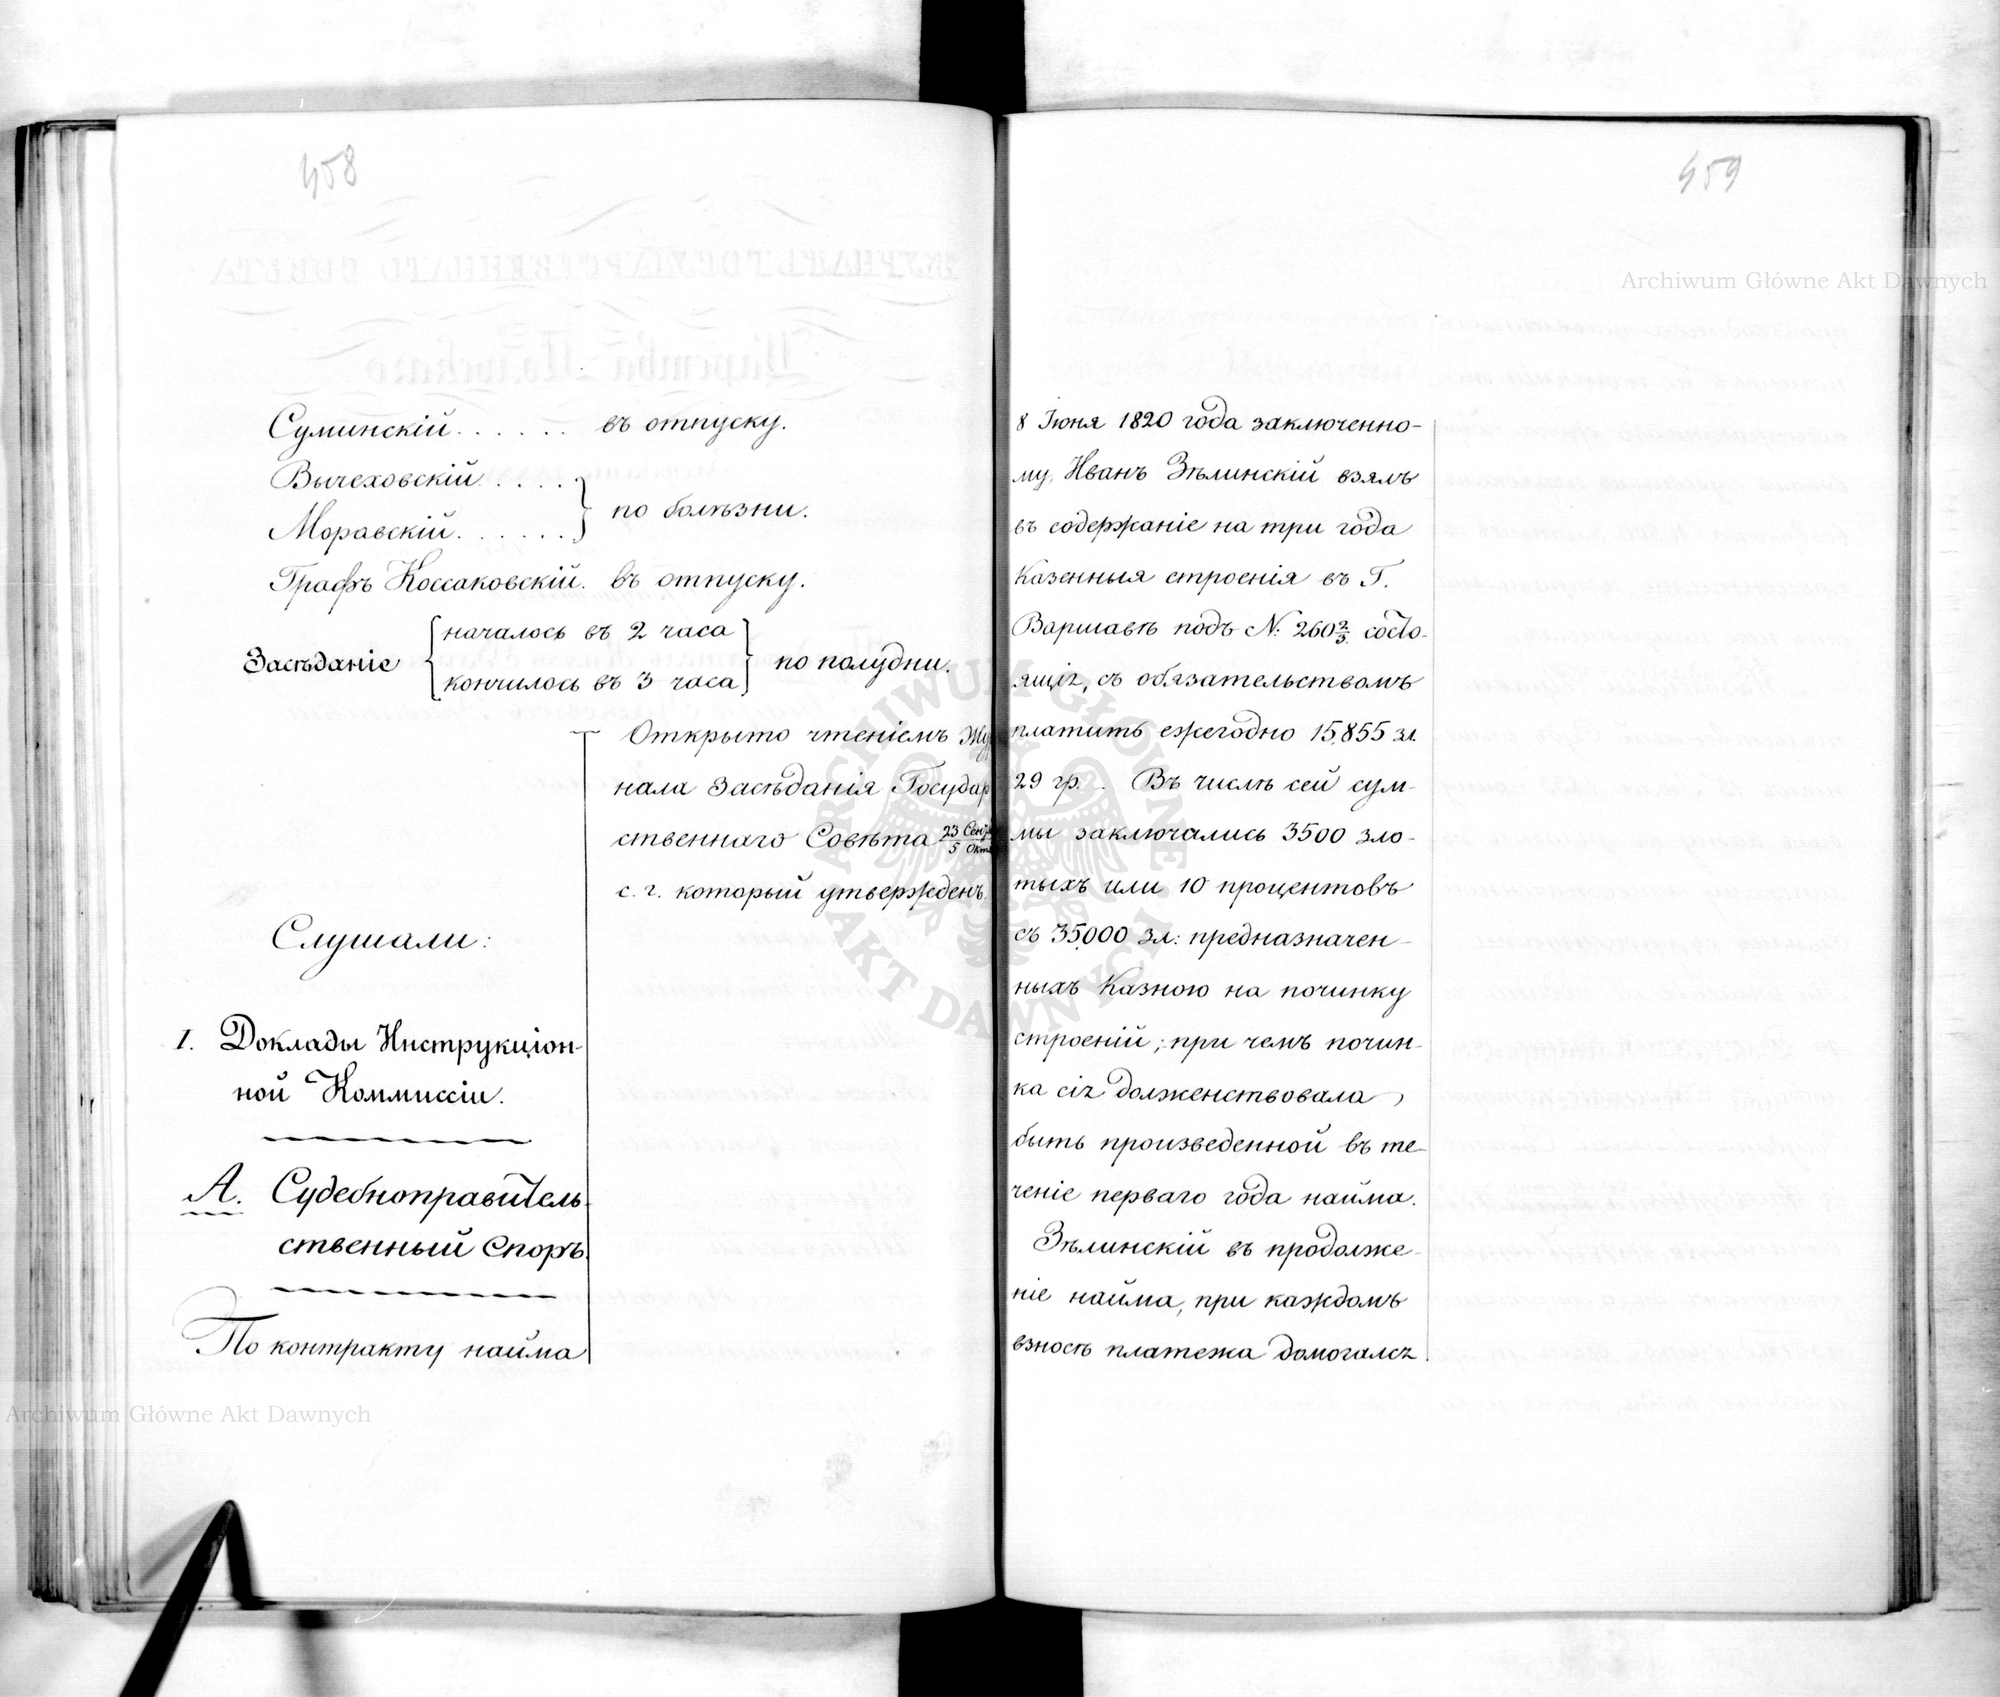 458
Суминскій . . . . . . въ отпуску.
Вычеховскій . . . .
Моравскій . . . . . . } по болѣзни.
Графъ Коссаковскій. въ отпуску.
Засѣданіе { началось въ 2 часа
кончилось въ 3 часа } по полудни.
Открыто чтеніемъ Жур
нала Засѣданія Государ
ственнаго Совѣта 23 Сент / 5 Окт
с. г. который утвержденъ.
Слушали:
I. Доклады Инструкціон-
ной Коммиссіи.
А. Судебноправитель-
ственный Споръ.
По контракту найма
459
8 Іюня 1820 года заключенно-
му, Иванъ Зѣлинскій взялъ
въ содержаніе на три года
Казенныя строенія въ Г.
Варшавѣ подъ N: 260 2/3. состо-
ящія, съ обязательствомъ
платить ежегодно 15,855 зл.
29 гр. Въ числѣ сей сум-
мы заключались 3500 зло-
тыхъ или 10 процентовъ
съ 35,000 зл: предназначен-
ныхъ Казною на починку
строеній; при чемъ почин-
ка сія долженствовала
быть произведенной въ те-
ченіе перваго года найма.
Зѣлинскій въ продолже-
ніе найма, при каждомъ
взносѣ платежа домогался
Archiwum Główne Akt Dawnych
Archiwum Główne Akt Dawnych
ARCHIWUM GŁÓWNE AKT DAWNYCH